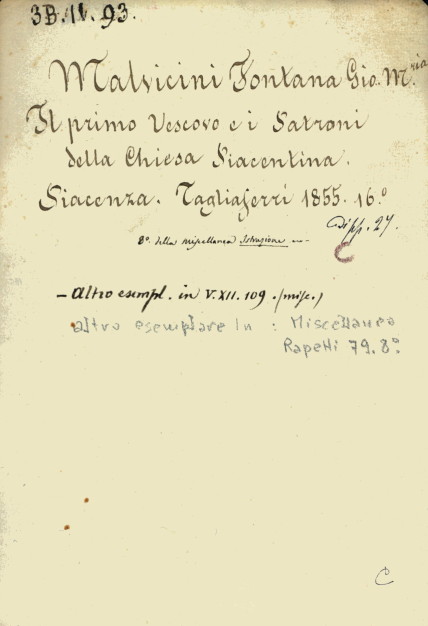 3B.IV.93.
Malvicini Fontana Gio. M.ria
Il primo Vescovo e i Patroni
della Chiesa Piacentina.
Piacenza. Tagliaferri 1855. 16.º
di pp. 27.
8º. della miscellanea Istruzione
– altro esempl. in V.XII.109. (misc.)
altro esemplare in : Miscellanea
Rapetti 79.8º
C